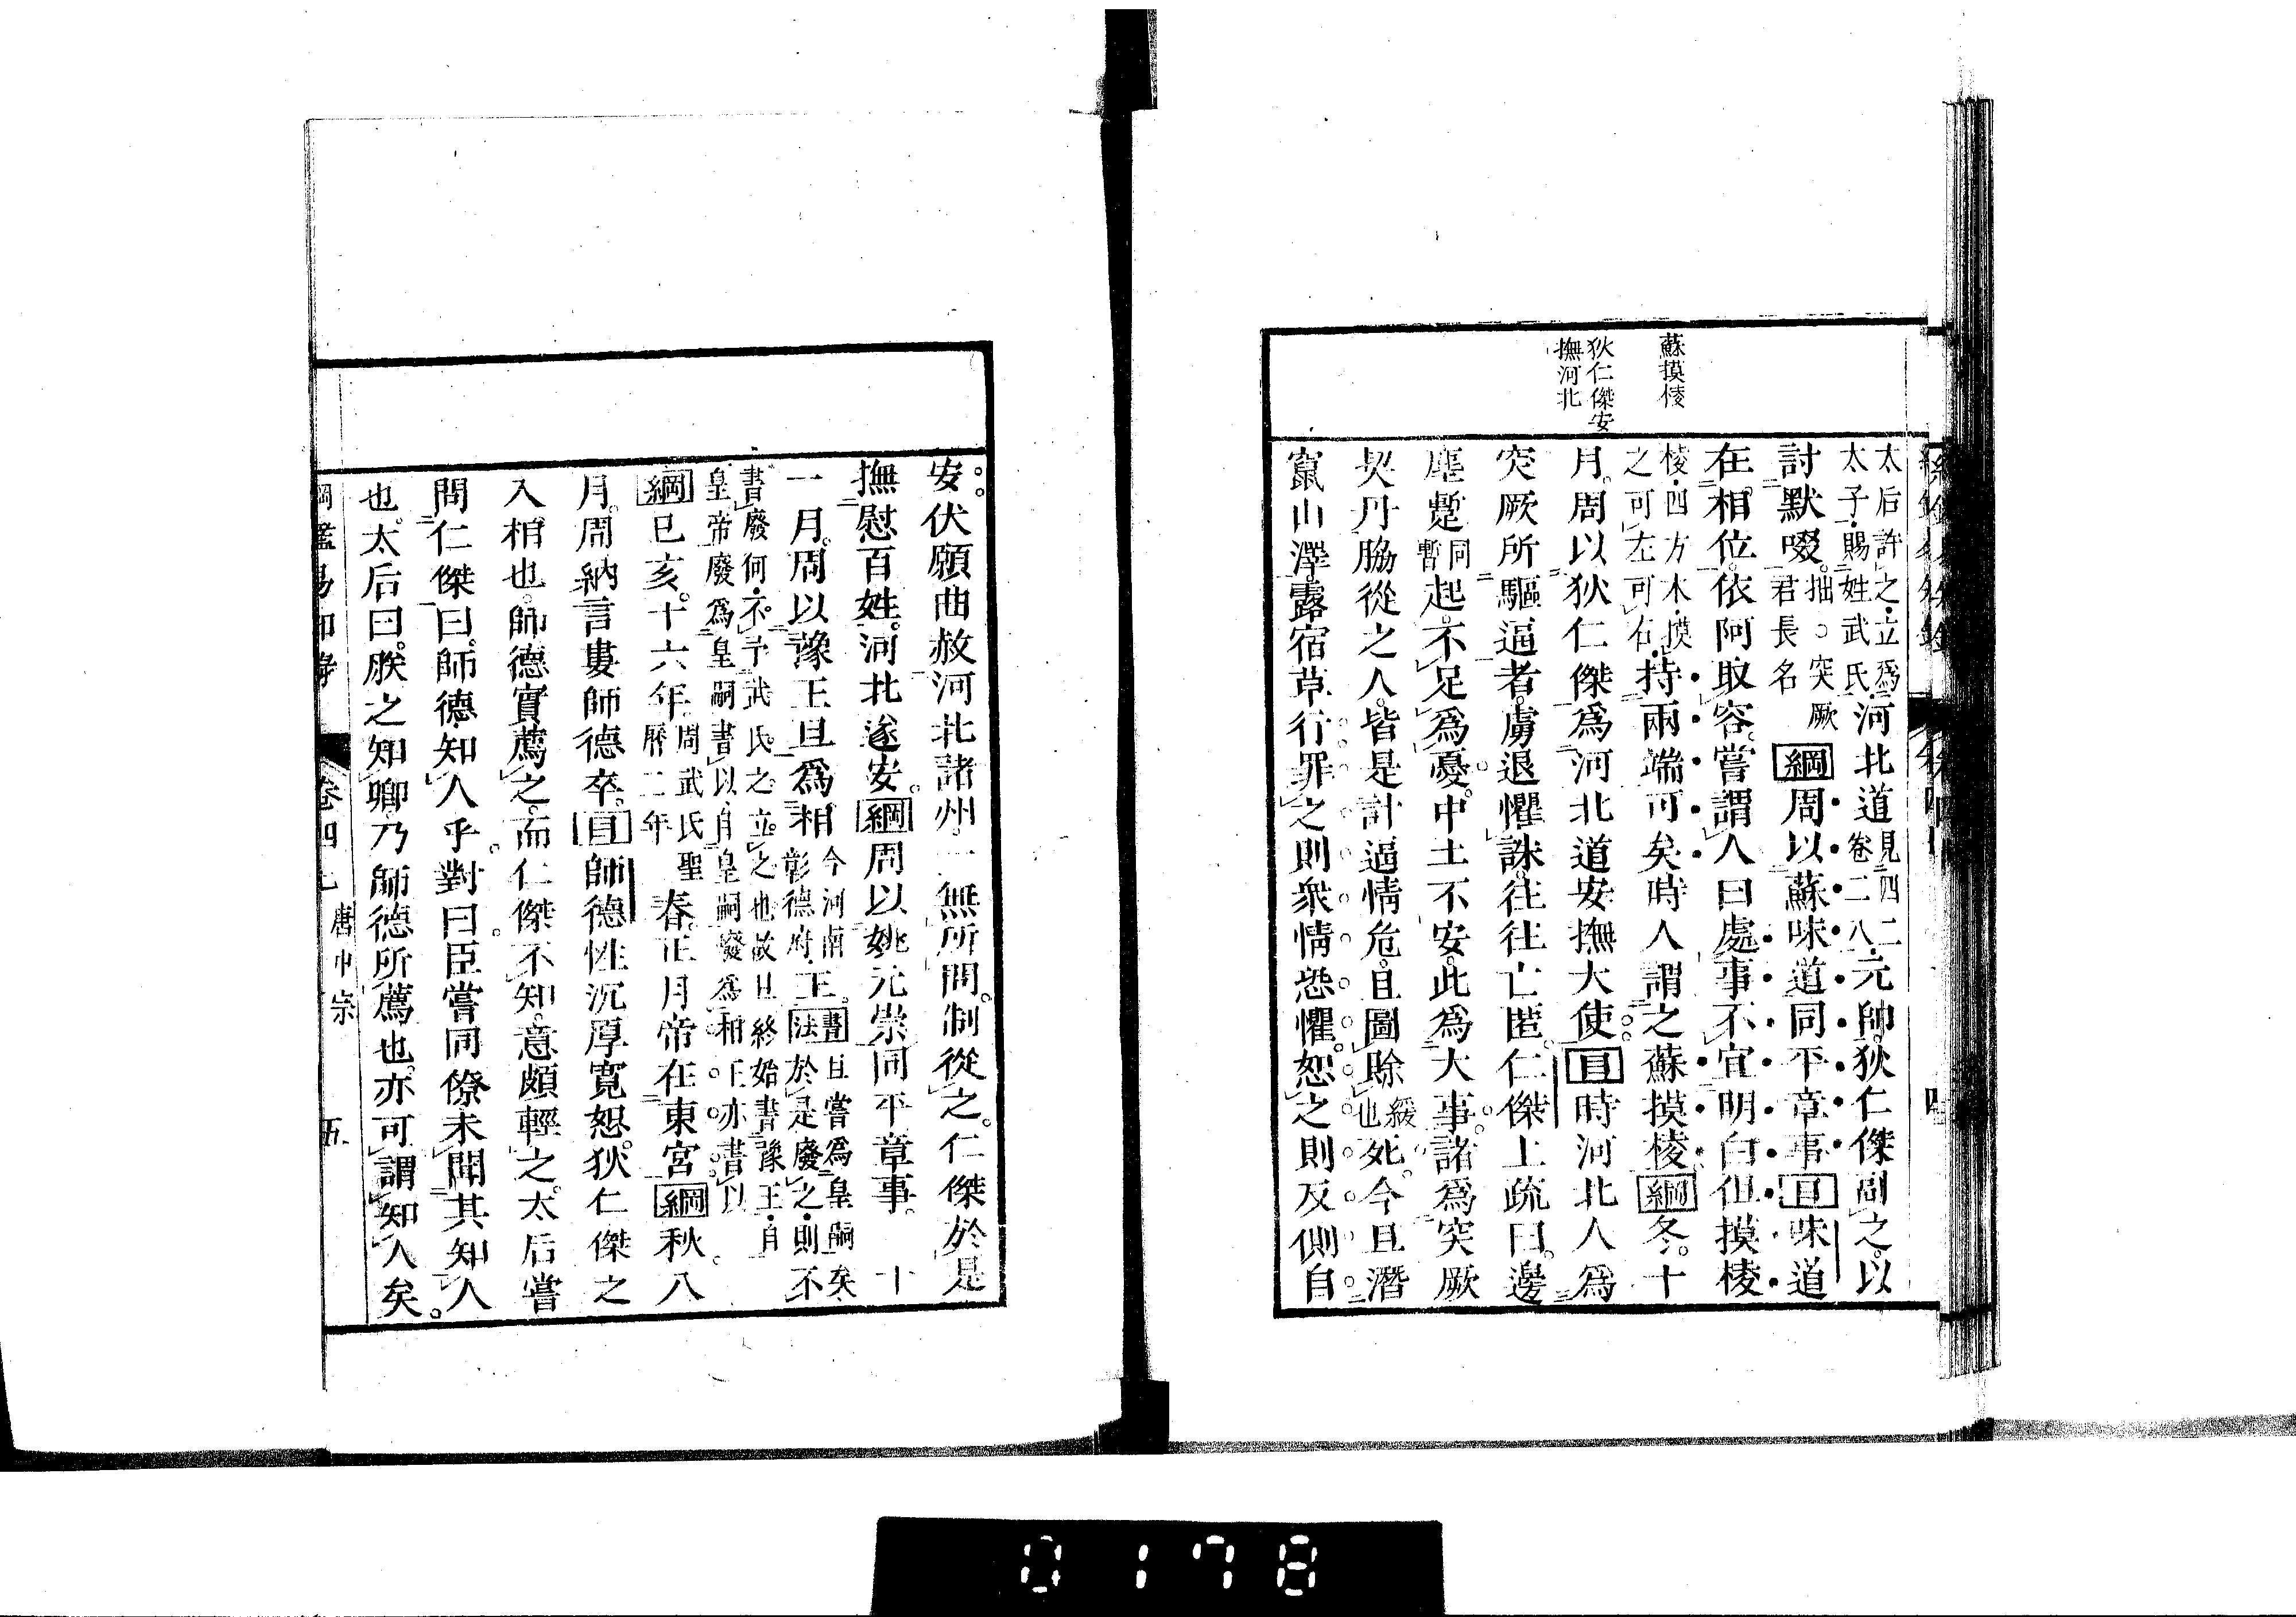 蘇摸棱
狄仁傑安
撫河北
太后許之立爲
太子賜姓武氏
河北道
見四二
卷二八
元帥狄仁傑副之以
討默啜
拙○突厥
君長名
綱周以蘇味道同平章事目味道
在相位依阿取容嘗謂人曰處事不宜明白但摸棱
棱四方木摸
之可左可右
持兩端可矣時人謂之蘇摸棱綱冬十
月周以狄仁傑爲河北道安撫大使目時河北人爲
突厥所驅逼者虜退懼誅往往亡匿仁傑上疏曰邊
塵蹔
同
暫
起不足爲憂中土不安此爲大事諸爲突厥
契丹脇從之人皆是計逼情危且圖賒
緩
也
死今且潛
竄山澤露宿草行罪之則衆情恐懼恕之則反側自
安伏願曲赦河北諸州一無所問制從之仁傑於是
撫慰百姓河北遂安綱周以姚元崇同平章事 十
一月周以豫王旦爲相
今河南
彰德府
王
書法
旦嘗爲皇嗣矣
於是廢之則不
書廢何不予武氏之立之也故旦終始書豫王自
皇帝廢爲皇嗣書以自皇嗣廢爲相王亦書以
綱己亥十六年
周武氏聖
曆二年
春正月帝在東宮綱秋八
月周納言婁師德卒目師德性沉厚寛恕狄仁傑之
入相也師德實薦之而仁傑不知意頗輕之太后嘗
問仁傑曰師德知人乎對曰臣嘗同僚未聞其知人
也太后曰朕之知卿乃師德所薦也亦可謂知人矣
綱鑑易知録 卷四七 唐中宗 五